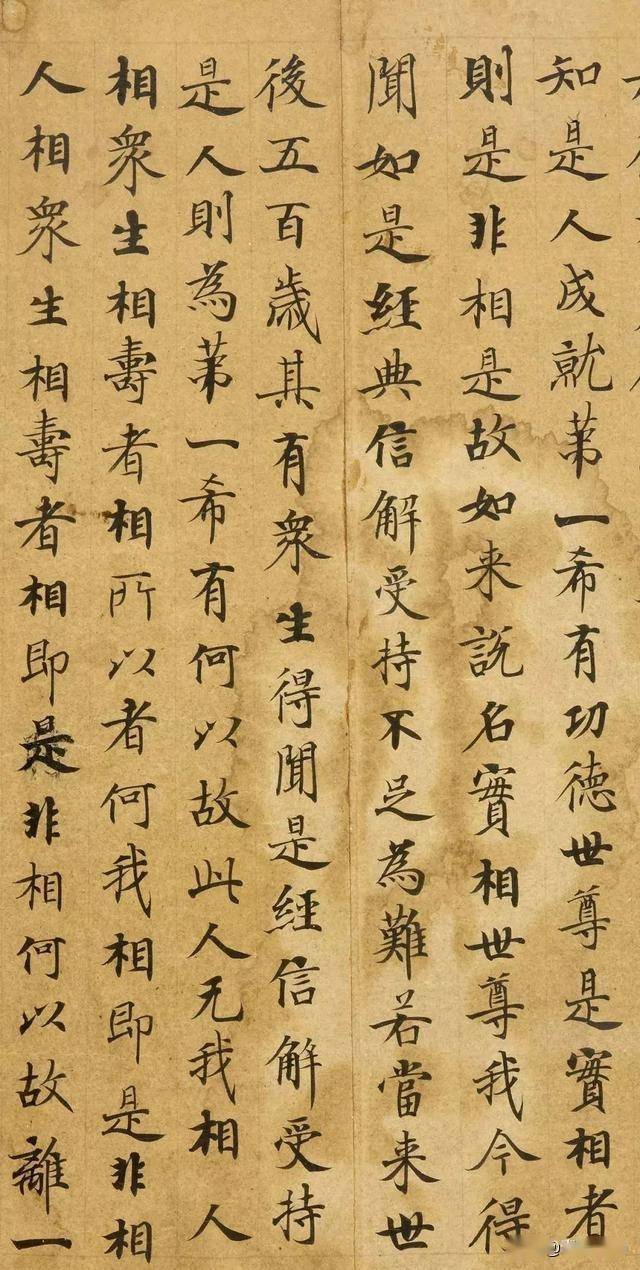 知是人成就苐一希有功德世尊是實相者
則是非相是故如来説名實相世尊我今得
聞如是經典信解受持不足為難若當来世
後五百歲其有衆生得聞是經信解受持
是人則為苐一希有何以故此人无我相人
相衆生相壽者相所以者何我相即是非相
人相衆生相壽者相即是非相何以故離一